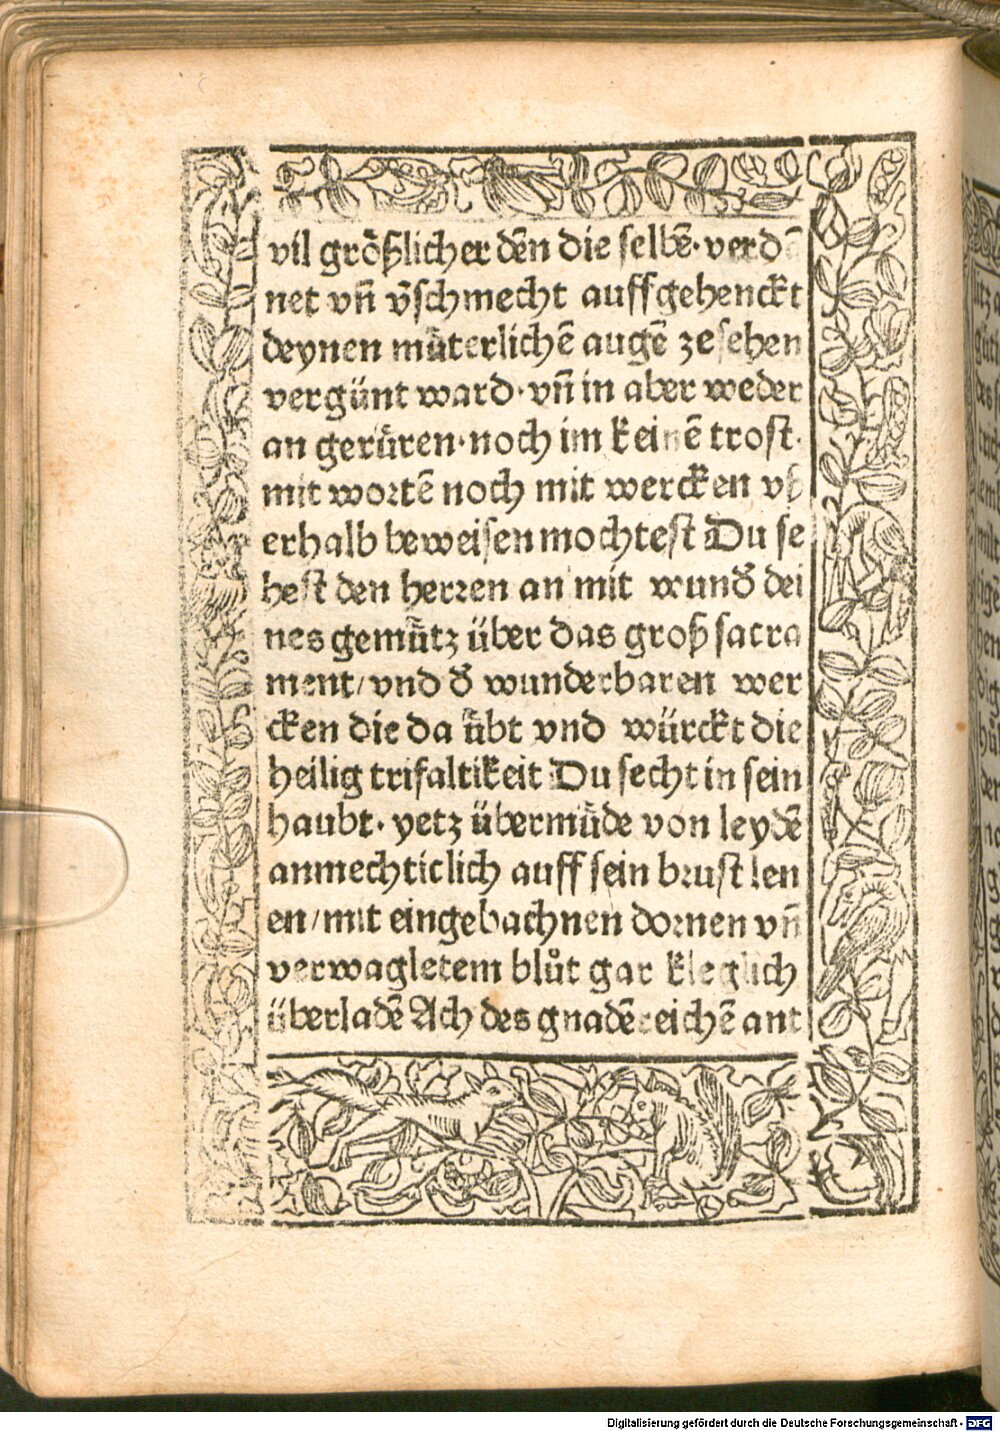 vil größlicher dēn die selbē· verdā
net vn̄ v̄schmecht auffgehenckt
deynen mu̇terlichē augē zesehen
vergünt ward· vn̄ in aber weder
an gerüren· noch im keinē trost·
mit wortē noch mit wercken vß
erhalb beweisen mochtest Du se
hest den herren an mit wund̄ dei
nes gemütz über das groß sacra
ment/ vnd d̄ wunderbaren wer
cken die da übt vnd würckt die
heilig trifaltikeit Du secht in sein
haubt· yetz übermüde von leydē
anmechticlich auff sein brust len
en/ mit eingebachnen dornen vn̄
verwagletem blůt gar kleglich
überladē Ach des gnadēreichē ant
Digitalisierung gefördert durch die Deutsche Forschungsgemeinschaft - DFG